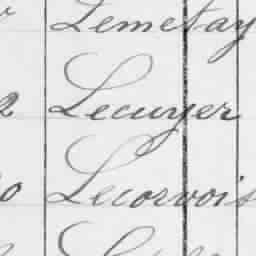 Lemetay
2 Lecuyer
0 Lecorvois